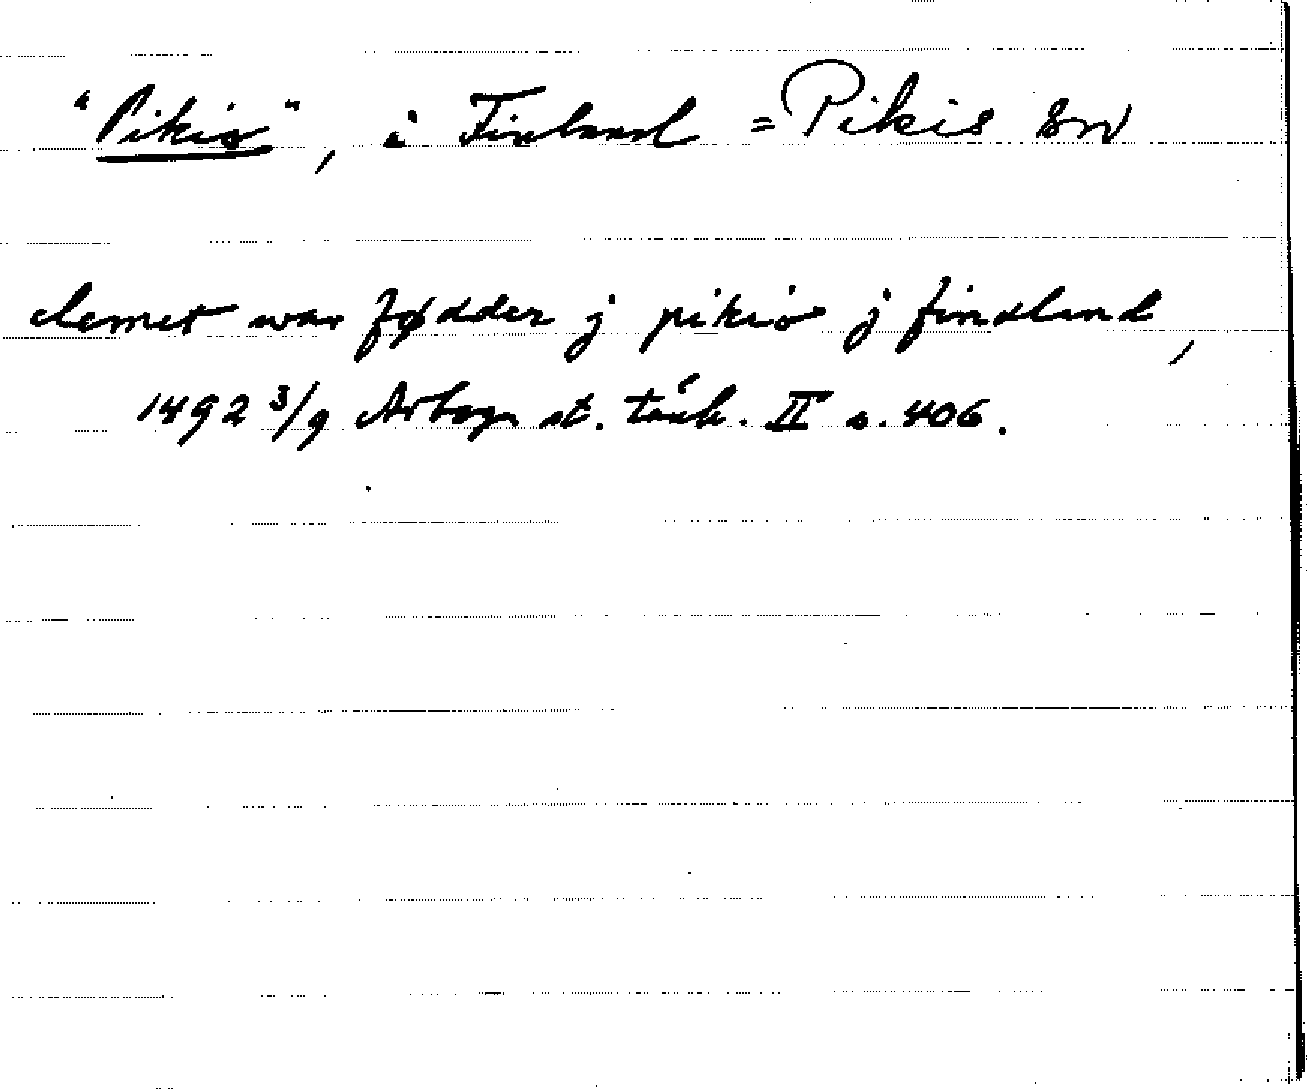 "Pikio", i Finland = Pikis sn
clemet war fødder j pikio j findland,
1492 3/9 Arboga st. tänk. II s. 406.